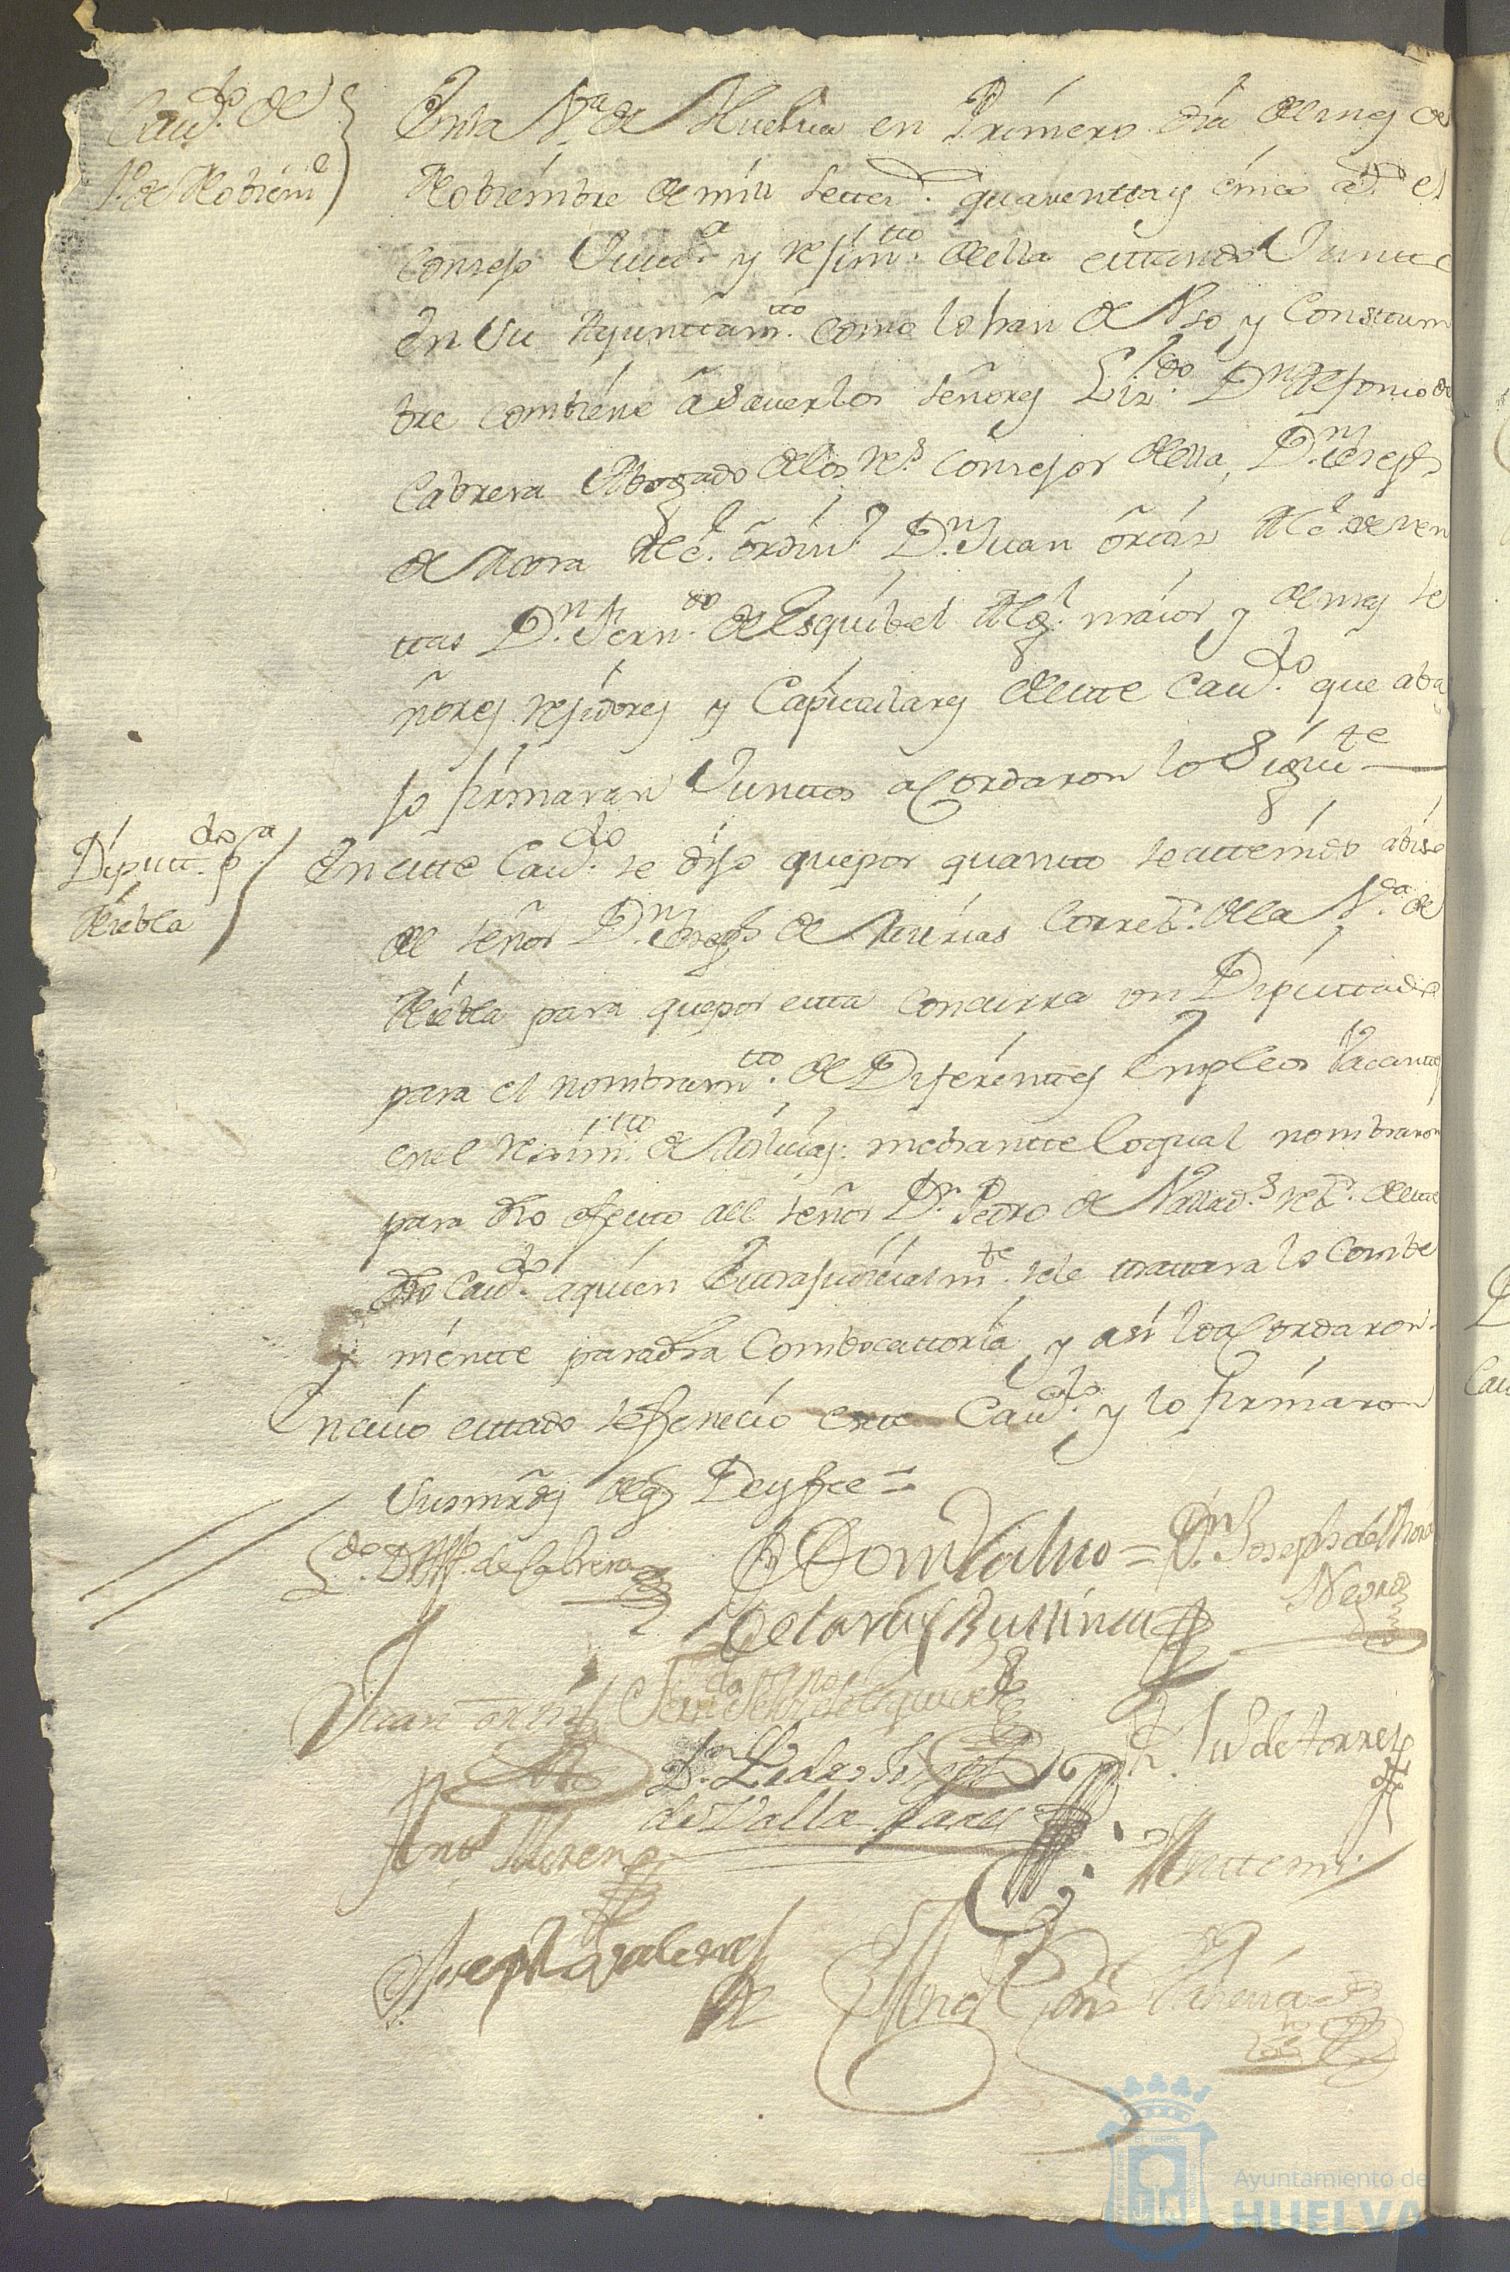 Cauᵈᵒ. de
1º de Nobiemᵉ
En la Vᵃ de Huelua en Primero dia del mes de
Nobiembre de mill settesᵒˢ. quarentta y cinco aˢ. el
Consejo Justᵃ. y rejimᵗᵗᵒ. de ella estando Juntte
en su Ayunttamᵗᵗᵒ. como lo han de Vso y Constum
bre combiene â sauer los señores Lizᵈᵒ. Dⁿ Ildefonso de
Cabrera Abogado de los Rˢ. Consejos della, Dⁿ Joseph
de Mora Alcᵉ. ôrdinᵒ Dⁿ. Juan ôrtis Alcᵉ. de ren
ttas Dⁿ. Fernᵈᵒ. de Esquibel Algˡ. maior y demas se
ñores rejidores y Capitulares de este Cauᵈᵒ. que aba
jo firmaran Junttos acordaron lo Siguᵗᵉ
Diputtᵈᵒ. pᵃ.
Niebla
En este Cauᵈᵒ. se dijo que por quantto se a ttenido abiso
del señor Dⁿ. Joseph de Correxʳ. de la Vᵃ. de
Niebla para que por esta concurra un Diputtado
para el nombramᵗᵗᵒ. de Diferenttes Empleos Vacanttes
en el rejimᵗᵗᵒ. de Milicias: mediantte lo qual nombraron
para dho efectto al señor Dⁿ. Pedro de Valladˢ. rexʳ. de este
dho Cauᵈᵒ. a quien Extrajudicialmᵗᵉ. se le trattara lo Combe
nientte para dha Combocattoria y asi lo acordaron.
En cuio esttado se fenecio este Cauᵈᵒ. y lo firmaron
Sus mrdes de q Doy fee =
Lᵈᵒ. D Ildᵒ. de Cabrera
Dⁿ. Joseph de Mora
Negro
Juan ortis
Dⁿ. Pedro Joseph
de Valladares
de Torres
Antᵒ Moreno
Antte mi
Joseph
Ayuntamiento de
HUELVA